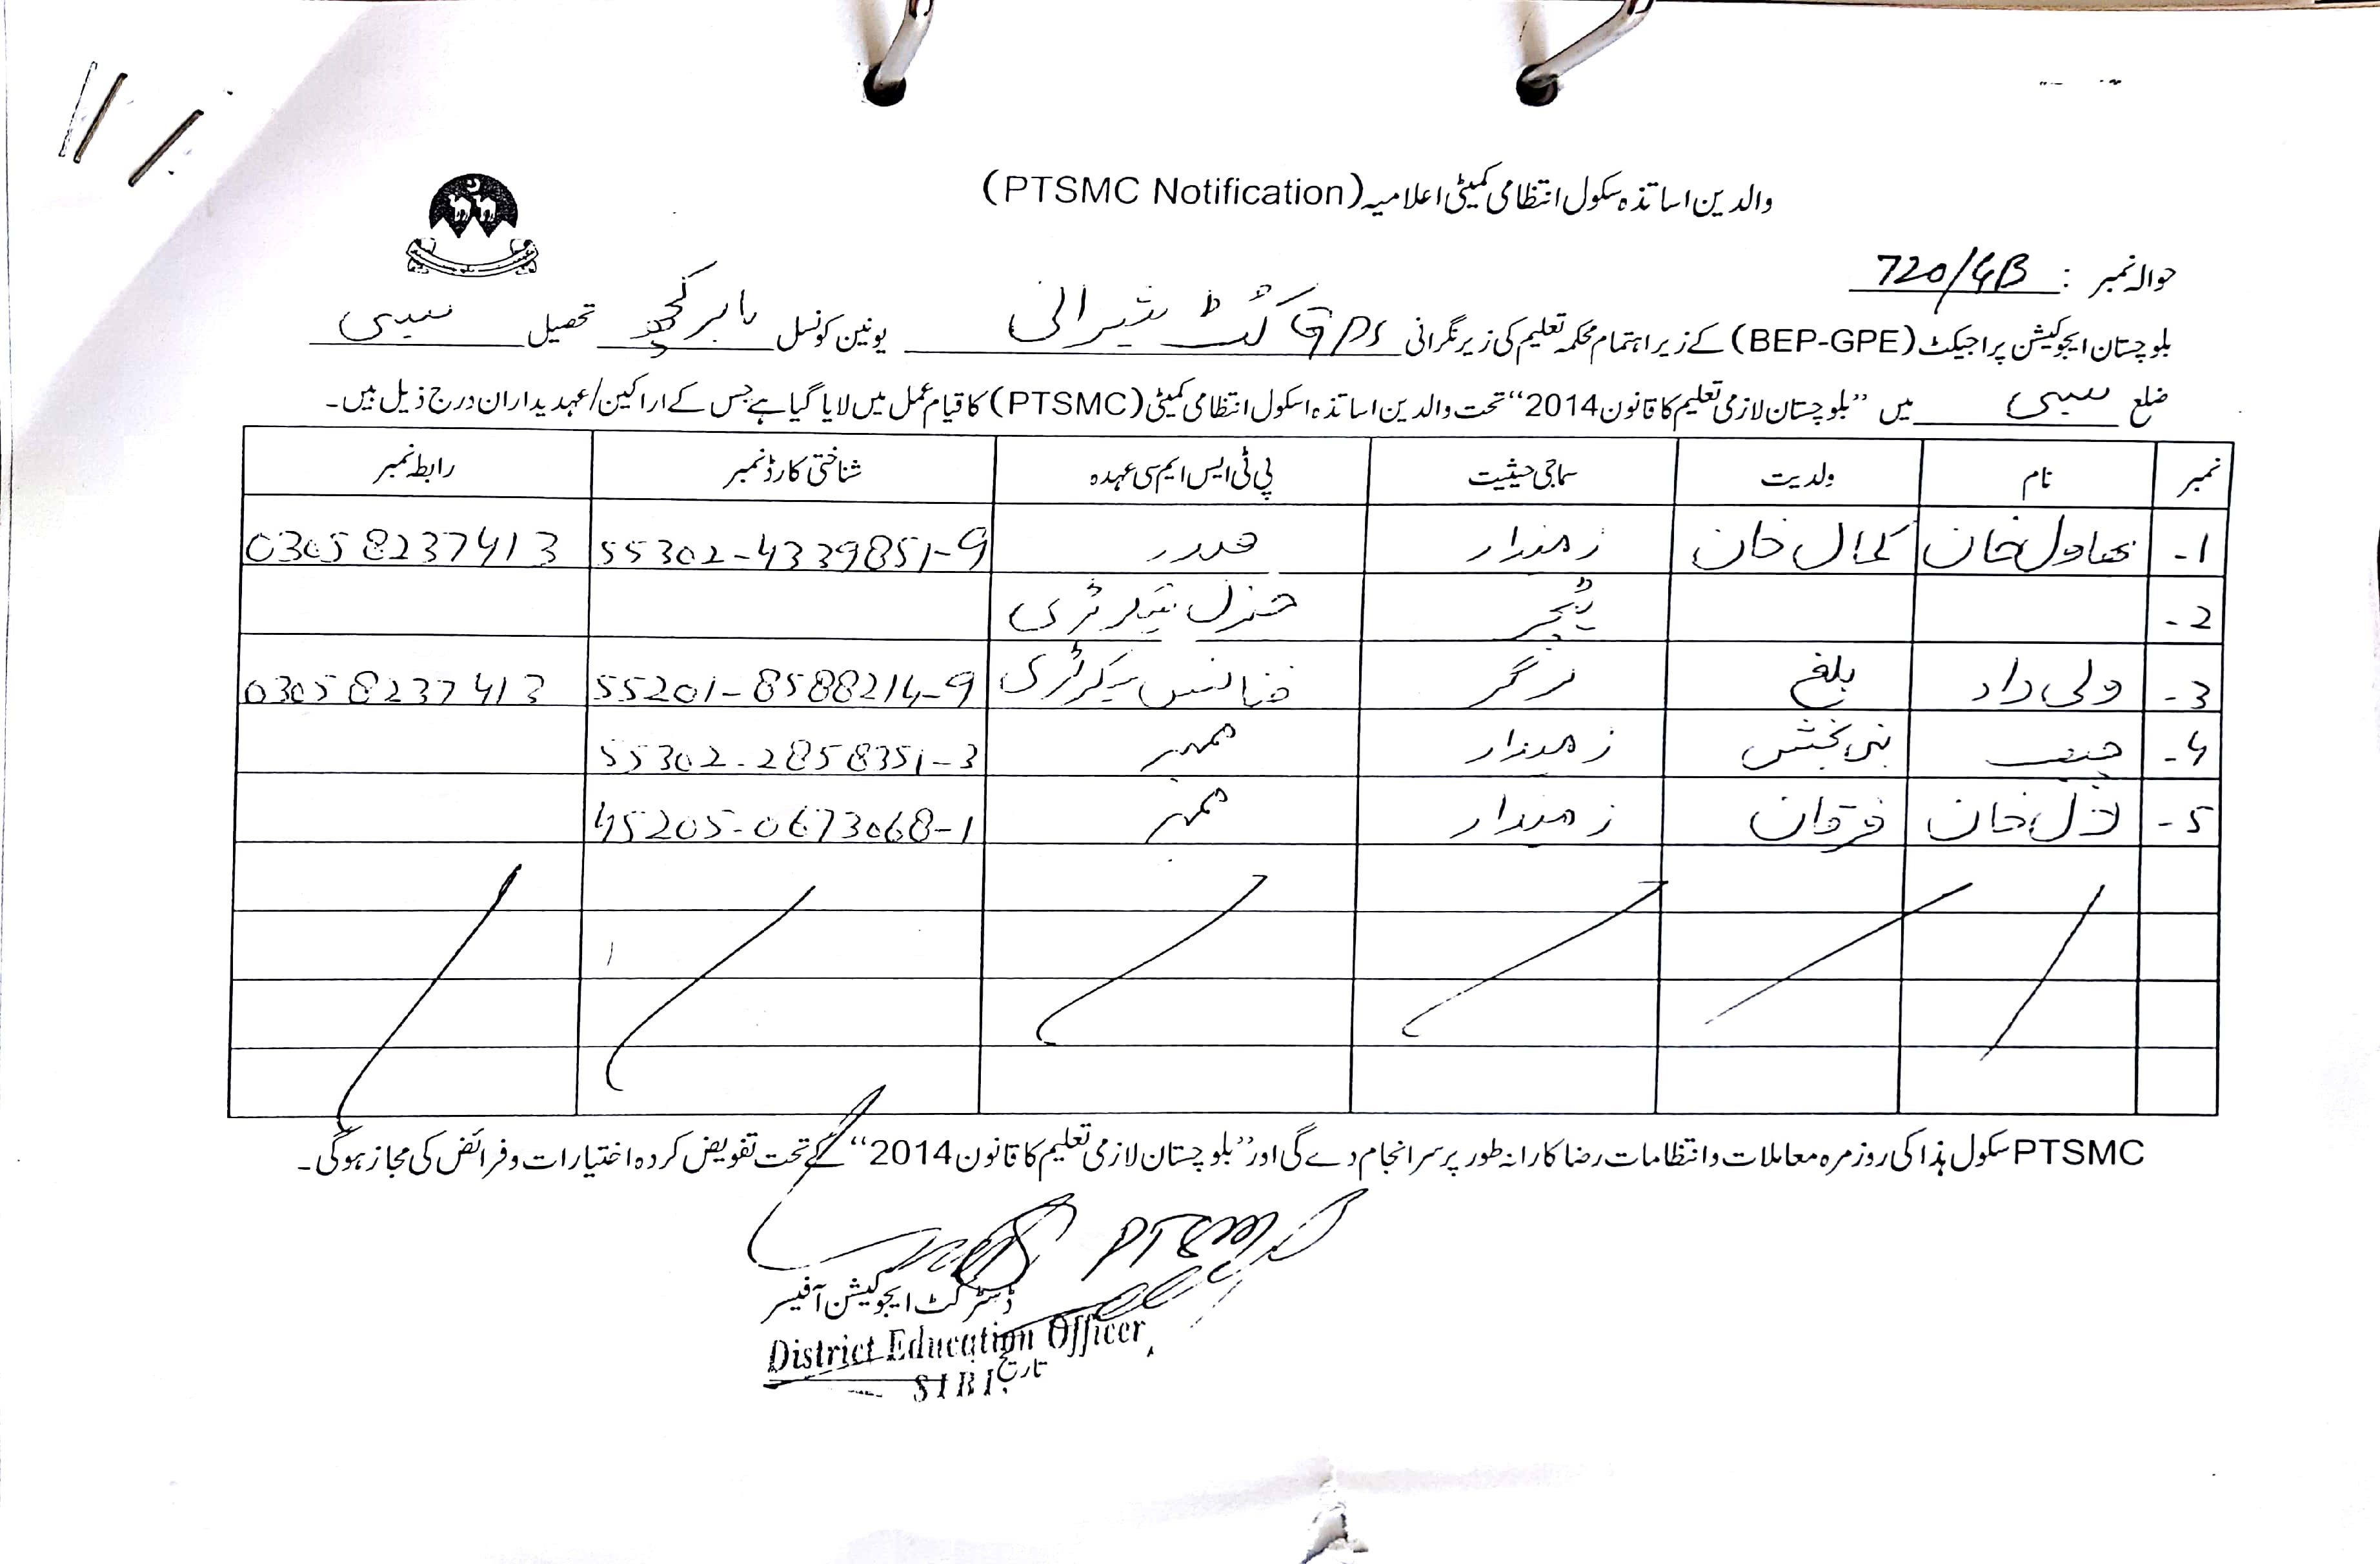 والدین اساتذہ سکول انتظامی کمیٹی اعلامیہ (PTSMC Notification)
حوالہ نمبر : 720/GB
بلوچستان ایجوکیشن پراجیکٹ (BEP-GPE) کے زیر اہتمام محکمہ تعلیم کی زیر نگرانی GPS کٹ شیرانی یونین کونسل بابر کچھ تحصیل سبی
ضلع سبی میں ”بلوچستان لازمی تعلیم کا قانون 2014“ تحت والدین اساتذہ اسکول انتظامی کمیٹی (PTSMC) کا قیام عمل میں لایا گیا ہے جس کے اراکین/عہدیداران درج ذیل ہیں۔
نمبر نام ولدیت سماجی حیثیت پی ٹی ایس ایم سی عہدہ شناختی کارڈ نمبر رابطہ نمبر
1- بہاول خان کمال خان زمیندار صدر 55302-4339851-9 03058237413
2- ٹیچر جنرل سیکرٹری
3- ولی داد بلغ فنانس سیکرٹری 55201-8588214-9 03058237413
4- حبیب نبی بخش زمیندار ممبر 55302-2858351-3
5- لال خان فرقان زمیندار ممبر 45205-0673068-1
PTSMC سکول ہذا کی روزمرہ معاملات و انتظامات رضاکارانہ طور پر سرانجام دے گی اور ”بلوچستان لازمی تعلیم کا قانون 2014“ کے تحت تفویض کردہ اختیارات و فرائض کی مجاز ہوگی۔
PTSMC
ڈسٹرکٹ ایجوکیشن آفیسر
District Education Officer
SIBI
تاریخ